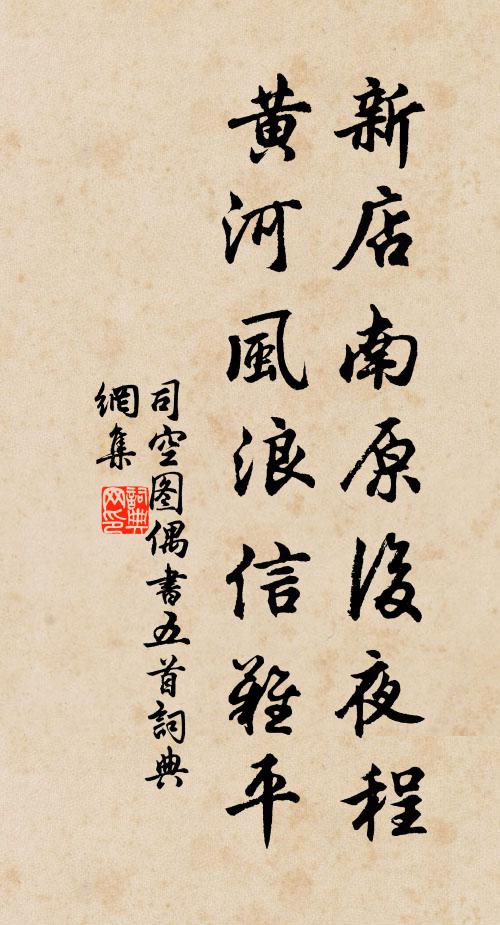 新店南原後夜程
黃河風浪信難平
司空图偶書五首詞典
網集
詞典
网印